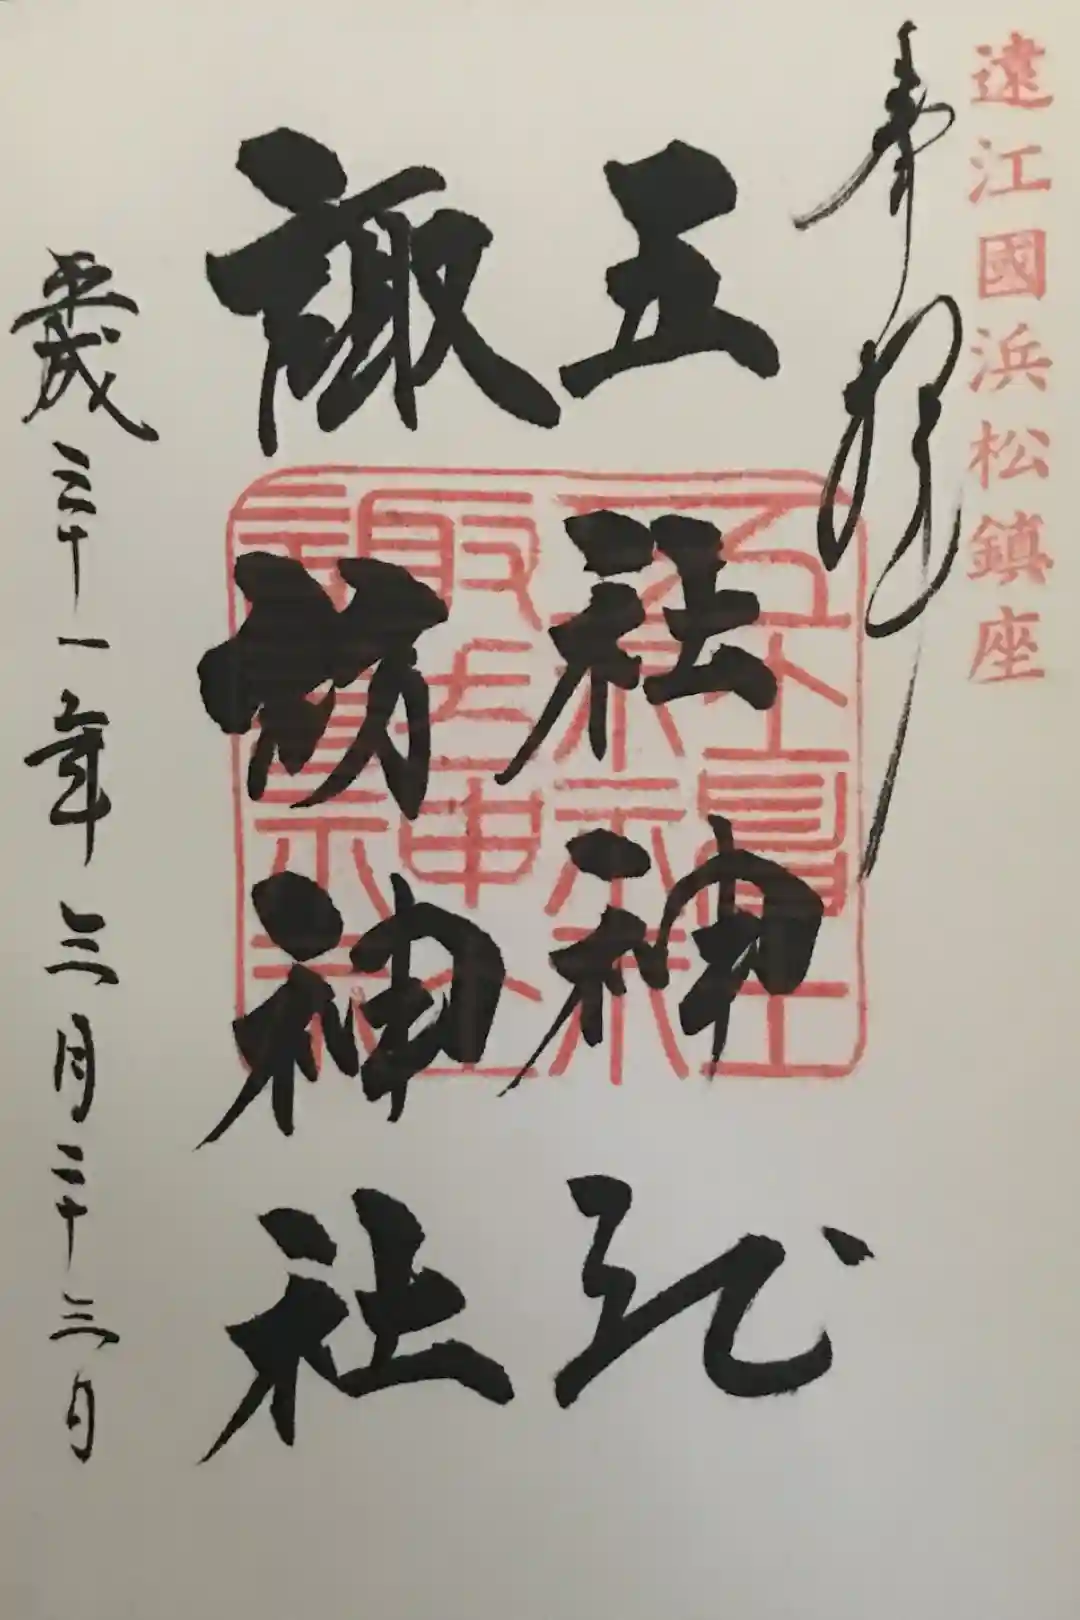 遠江國浜松鎮座
奉拝
五社神社
諏訪神社
平成三十一年三月二十三日